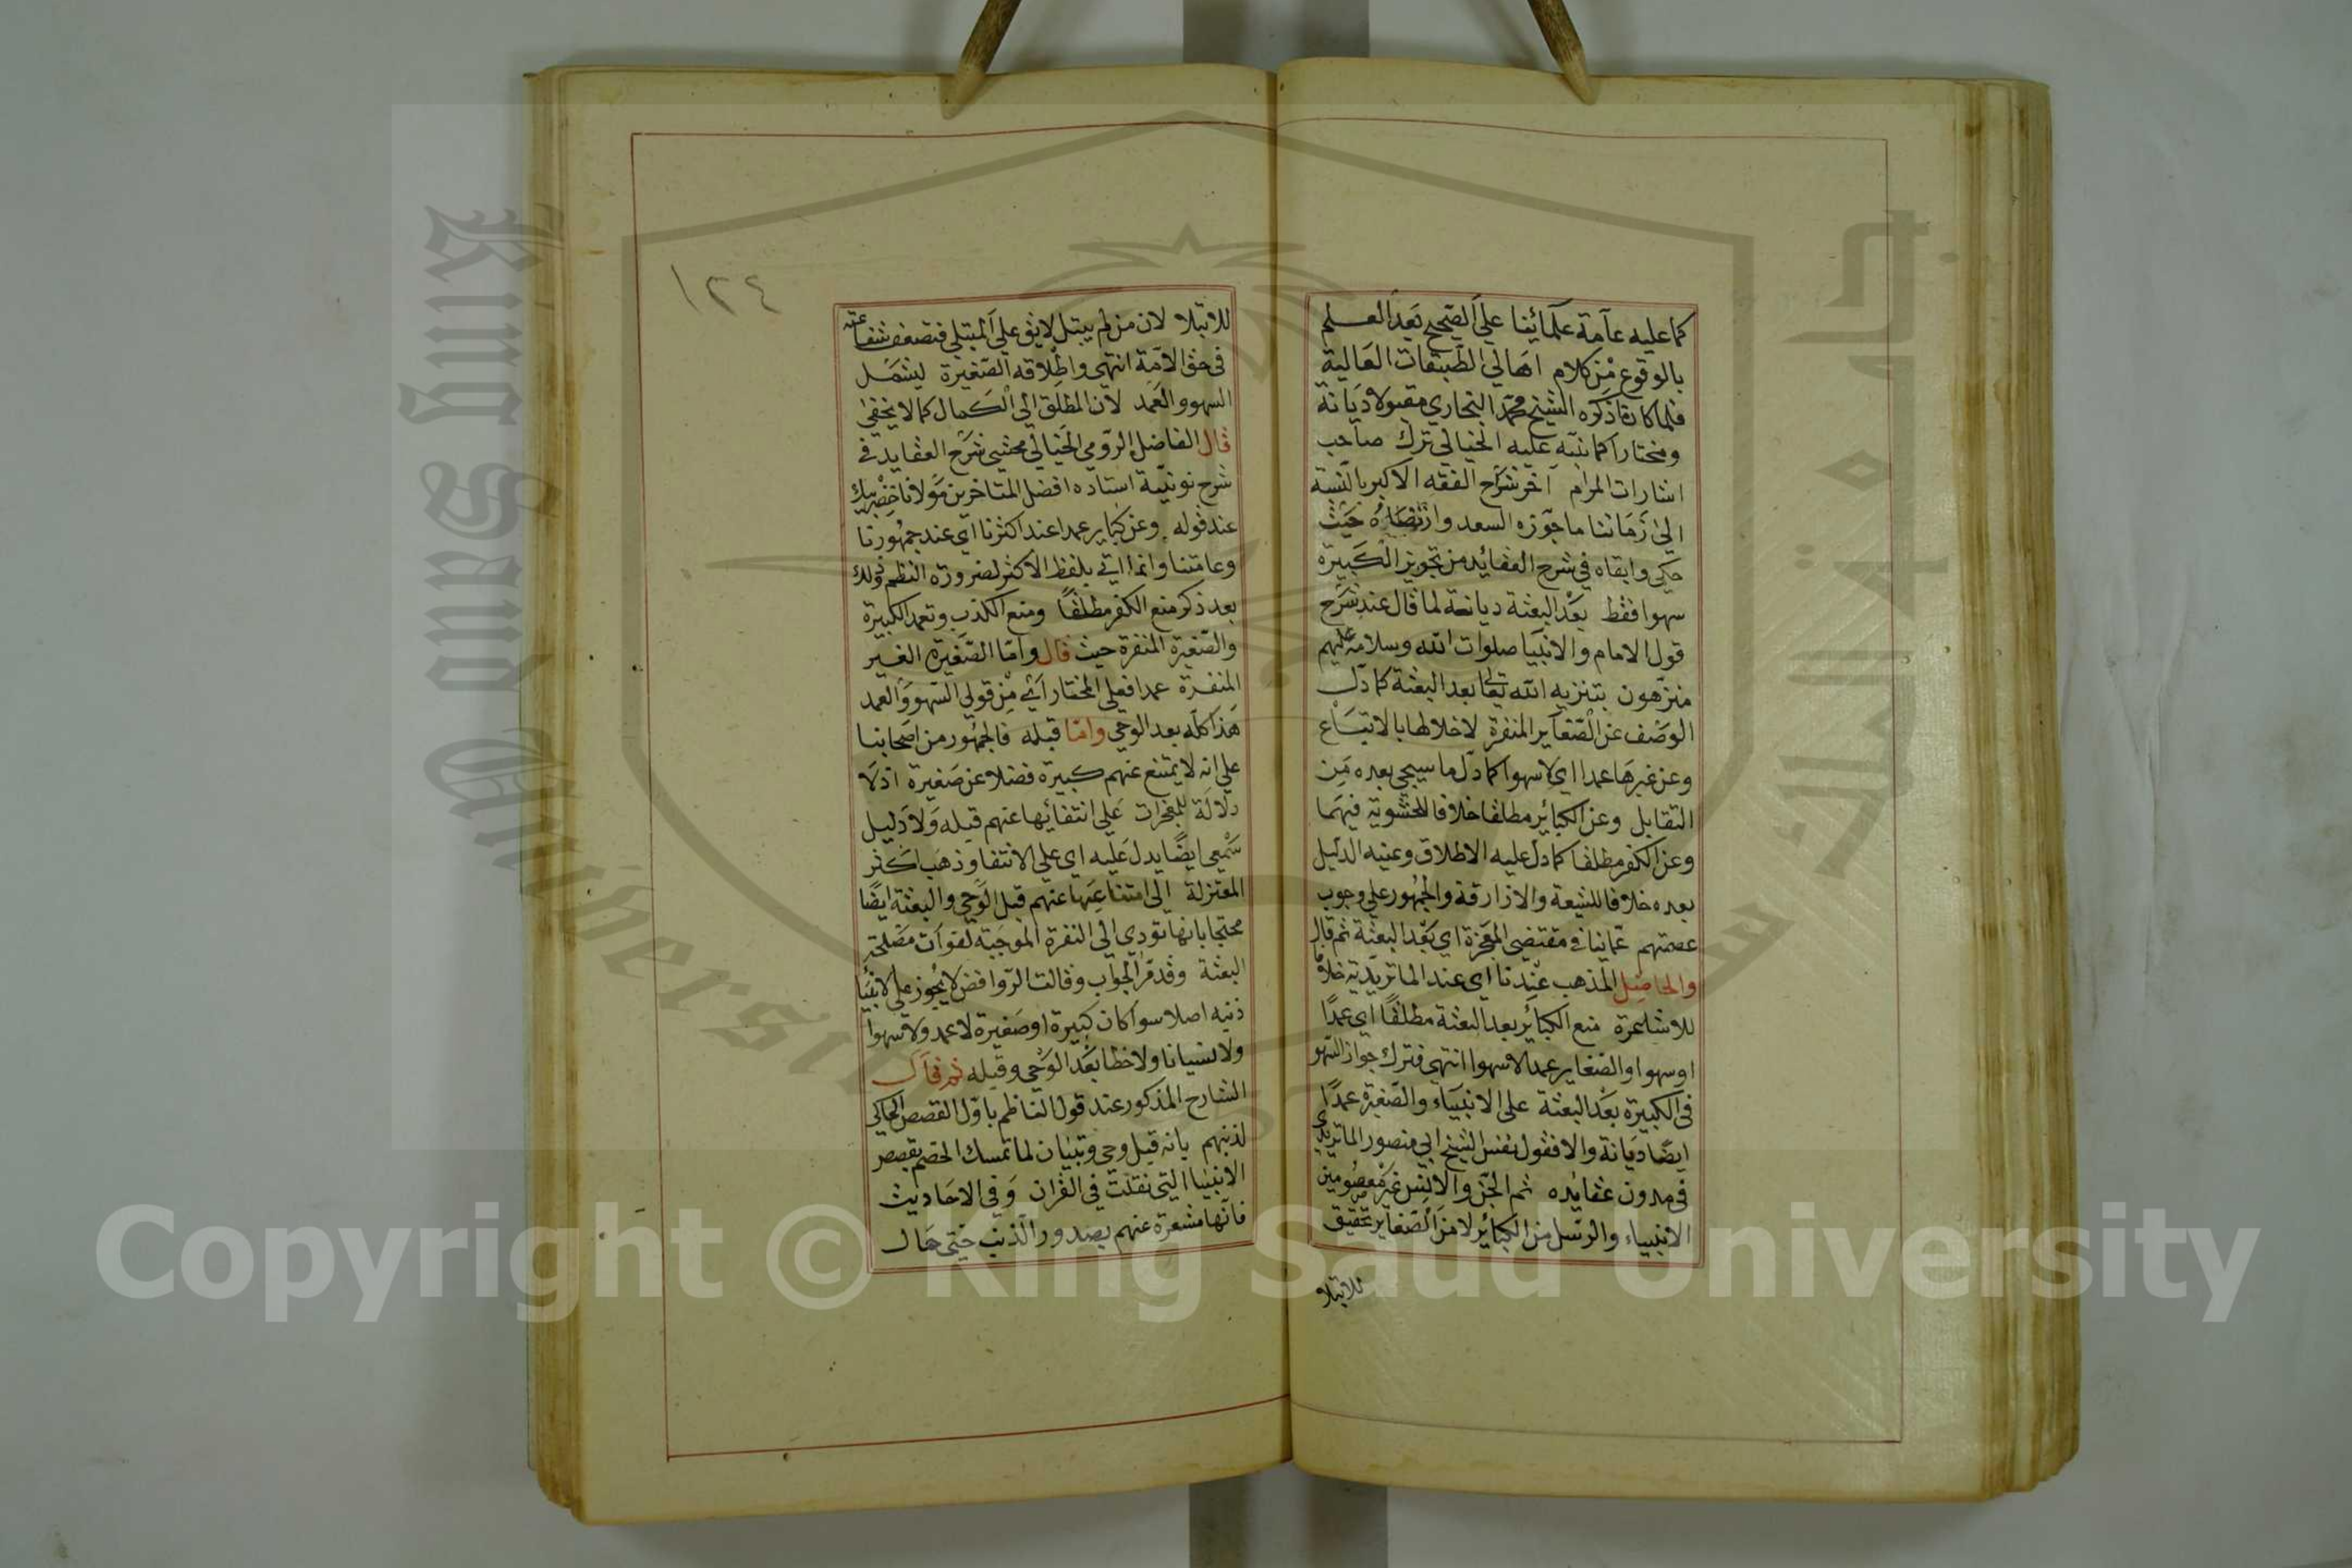 كما عليه عآمة علمائنا على الصحيح بعد العلم
بالوقوع من كلام اهالي الطبقات العالية
فلما كان ما ذكره الشيخ محمد البخاري مقبولا ديانة
ومختارا كما نبه عليه الخيالي ترك صاحب
اشارات المرام آخر شراح الفقه الاكبر بالنسبة
الى زماننا ما جوزه السعد وارتضاه حيث
حكى وابقاه في شرح العقائد من تجويز الكبيرة
سهوا فقط بعد البعثة ديانة لما قال عند شرح
قول الامام والانبيا صلوات الله وسلامه عليهم
منزهون بتنزيه الله تعالى بعد البعثة كما دل
الوصف عن الصغاير المنفرة لاخلالها بالاتباع
وعن غيرها عمدا اي لا سهوا كما دل ما سيجي بعده من
التقابل وعن الكبائر مطلقا خلافا للحشوية فيهما
وعن الكفر مطلقا كما دل عليه الاطلاق وعنيه الدليل
بعده خلافا للشيعة والازارقة والجمهور على وجوب
عصمتهم عما ينافي مقتضى المعجزة اي بعد البعثة ثم قال
والحاصل المذهب عندنا اي عند الماتريدية خلافا
للاشاعرة منع الكبائر بعد البعثة مطلقا اي عمدا
او سهوا والصغاير عمدا لا سهوا انتهى فترك جواز السهو
في الكبيرة بعد البعثة على الانبياء والصغيرة عمدا
ايضا ديانة والا فقول نفس الشيخ ابي منصور الماتريدي
في مدون عقائده ثم الجن والانس غير معصومين
الانبياء والرسل من الكبائر لا من الصغاير تحقيق
للابتلا
١٢٤
للابتلا لان من لم يبتل لا يثق على المبتلى فتضعف شفاعته
في حق الامة انتهى واطلاقه الصغيرة ليشمل
السهو والعمد لان المطلق الى الكمال كما لا يخفى
قال الفاضل الرومي الخيالي محشي شرح العقايد في
شرح نونية استاده افضل المتاخرين مولانا خضر بيك
عند قوله وعن كباير عمدا عند اكثرنا اي عند جمهورنا
وعامتنا وانما اتى بلفظ الاكثر لضرورة النظم وذلك
بعد ذكر منع الكفر مطلقا ومنع الكذب وتعمد الكبيرة
والصغيرة المنفرة حيث قال واما الصغيرة الغير
المنفرة عمدا فعلى المختار اي من قولي السهو والعمد
هذا كله بعد الوحي واما قبله فالجمهور من اصحابنا
على انه لا يمتنع عنهم كبيرة فضلا عن صغيرة اذ لا
دلالة للمعجزات على انتفائها عنهم قبله ولا دليل
سمعي ايضا يدل عليه اي على الانتفا وذهب اكثر
المعتزلة الى امتناعها عنهم قبل الوحي والبعثة ايضا
محتجا بانها تودي الى النفرة الموجبة لفوات مصلحة
البعثة وقد مر الجواب وقالت الروافض لا يجوز على الانبيا
ذنبه اصلا سوا كان كبيرة او صغيرة لا عمد ولا سهوا
ولا نسيانا ولا خطا بعد الوحي وقبله ثم قال
الشارح المذكور عند قول الناظم باول القصص الحاكي
لذنبهم بانه قبل وحي وتبيان لما تمسك الخصم بقصص
الانبيا التي نقلت في القران وفي الاحاديث
فانها مشعرة عنهم بصدور الذنب حتى حال